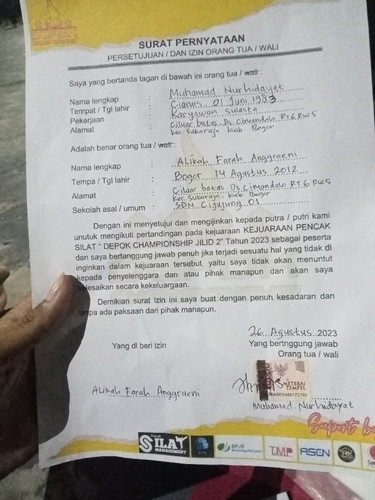 SURAT PERNYATAAN
PERSETUJUAN / DAN IZIN ORANG TUA / WALI
Saya yang bertanda tagan di bawah ini orang tua / wali :
Nama lengkap : Muhamad Nurhidayat
Tempat / Tgl lahir : Ciamis, 01 Juni 1983
Pekerjaan : Karyawan swasta
Alamat : Ciluar batas, Ds. Cimandala RT.6 RW5
kec. Sukaraja Kab Bogor
Adalah benar orang tua / wali :
Nama lengkap : ALikah Farah Anggraeni
Tempa / Tgl lahir : Bogor 14 Agustus 2012
Alamat : Ciluar batas Ds. Cimandala RT.6 RW5
kec. Sukaraja Kab. Bogor
Sekolah asal / umum : SDN Cigujung 01
Dengan ini menyetujui dan mengijinkan kepada putra / putri kami
unutuk mengikuti pertandingan pada kejuaraan KEJUARAAN PENCAK
SILAT " DEPOK CHAMPIONSHIP JILID 2" Tahun 2023 sebagai peserta
dan saya bertanggung jawab penuh jika terjadi sesuatu hal yang tidak di
inginkan dalam kejuaraan tersebut, yaitu saya tidak akan menuntut
kepada penyelenggara dan atau pihak manapun dan akan saya
selesaikan secara kekeluargaan.
Demikian surat Izin ini saya buat dengan penuh kesadaran dan
tanpa ada paksaan dari pihak manapun.
26 Agustus 2023
Yang di beri izin
Yang bertnggung jawab
Orang tua / wali
METERAI
TEMPEL
ALikah Farah Anggraeni
Muhamad Nurhidayat
Suport b
SILAT
MANAGEMENT
BPJS
TMP
ASCN